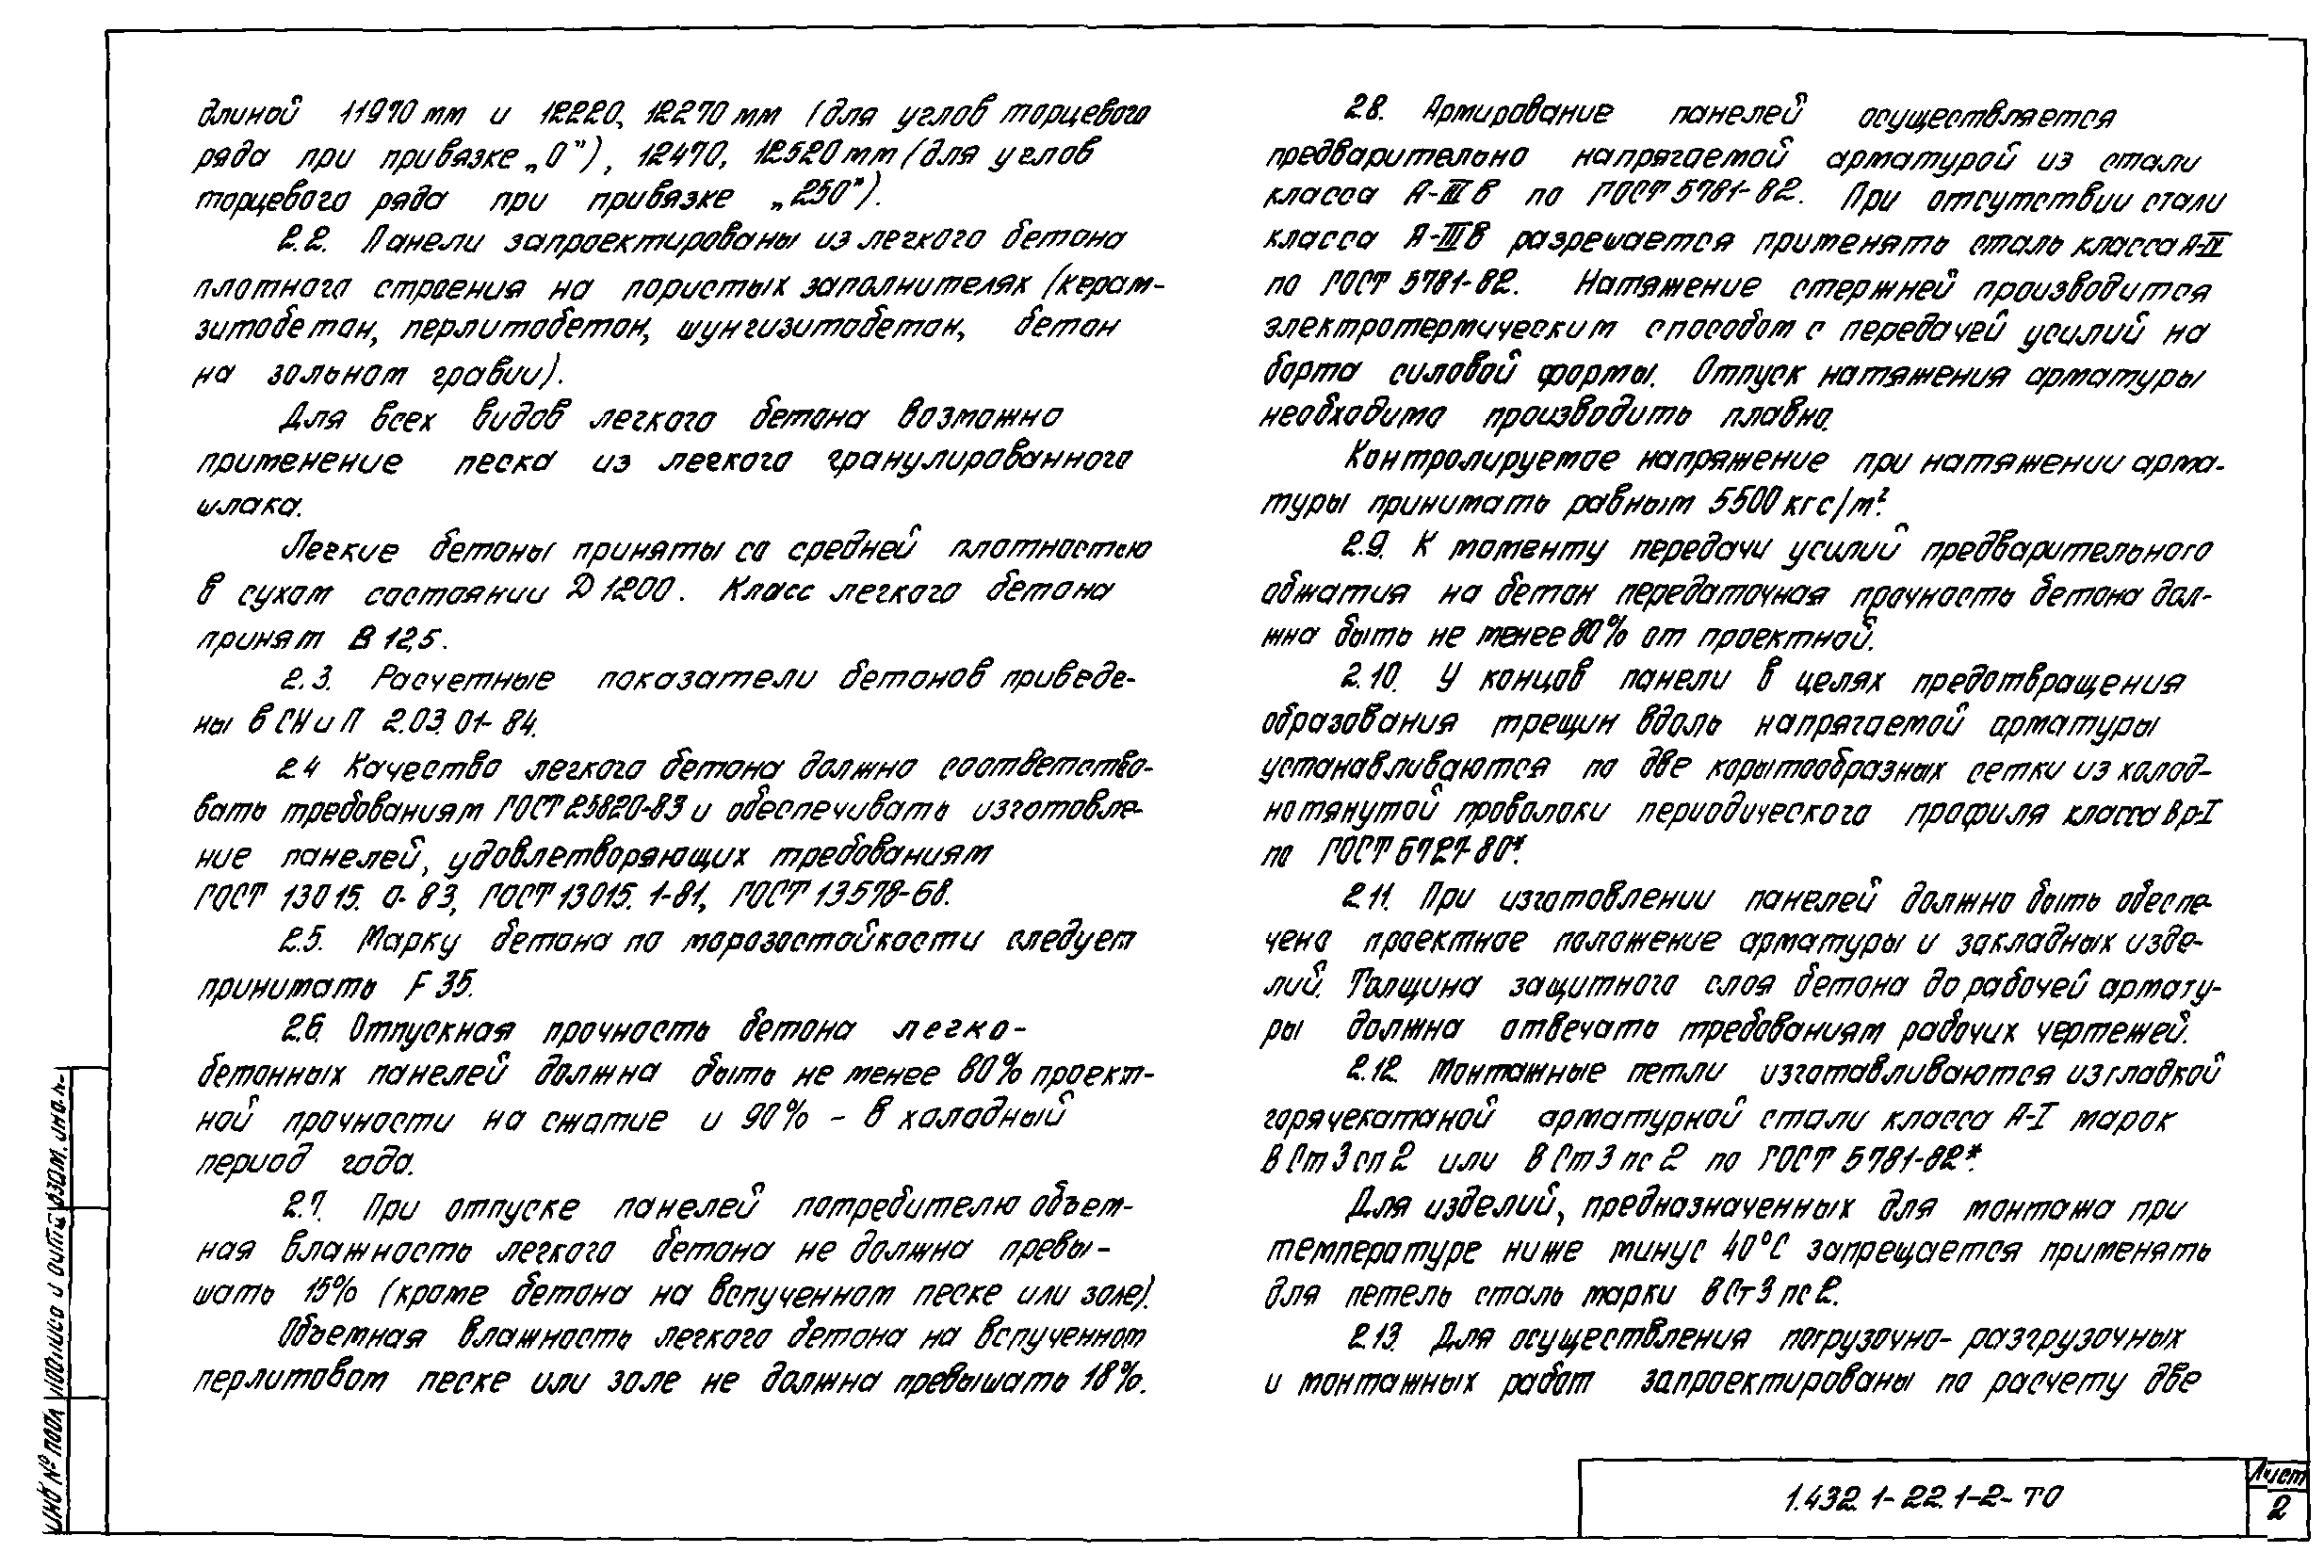 длиной 11970 мм и 12220, 12270 мм (для углов торцевого
ряда при привязке „0"), 12470, 12520 мм (для углов
торцевого ряда при привязке „250").
2.2. Панели запроектированы из легкого бетона
плотного строения на пористых заполнителях (керам-
зитобетон, перлитобетон, шунгизитобетон, бетон
на зольном гравии).
Для всех видов легкого бетона возможно
применение песка из легкого гранулированного
шлака.
Легкие бетоны приняты со средней плотностью
в сухом состоянии D 1200. Класс легкого бетона
принят В 12,5.
2.3. Расчетные показатели бетонов приведе-
ны в СНиП 2.03.01-84.
2.4 Качество легкого бетона должно соответство-
вать требованиям ГОСТ 25820-83 и обеспечивать изготовле-
ние панелей, удовлетворяющих требованиям
ГОСТ 13015.0-83, ГОСТ 13015.1-81, ГОСТ 13578-68.
2.5. Марку бетона по морозостойкости следует
принимать F 35.
2.6. Отпускная прочность бетона легко-
бетонных панелей должна быть не менее 80% проект-
ной прочности на сжатие и 90% - в холодный
период года.
2.7. При отпуске панелей потребителю объем-
ная влажность легкого бетона не должна превы-
шать 15% (кроме бетона на вспученном песке или золе).
Объемная влажность легкого бетона на вспученном
перлитовом песке или золе не должна превышать 18%.
2.8. Армирование панелей осуществляется
предварительно напрягаемой арматурой из стали
класса А-IIIв по ГОСТ 5781-82. При отсутствии стали
класса А-IIIв разрешается применять сталь класса А-IV
по ГОСТ 5781-82. Натяжение стержней производится
электротермическим способом с передачей усилий на
борта силовой формы. Отпуск натяжения арматуры
необходимо производить плавно.
Контролируемое напряжение при натяжении арма-
туры принимать равным 5500 кгс/м².
2.9. К моменту передачи усилий предварительного
обжатия на бетон передаточная прочность бетона дол-
жна быть не менее 80% от проектной.
2.10. У концов панели в целях предотвращения
образования трещин вдоль напрягаемой арматуры
устанавливаются по две корытообразных сетки из холод-
нотянутой проволоки периодического профиля класса Вр-I
по ГОСТ 6727-80*.
2.11. При изготовлении панелей должно быть обеспе-
чено проектное положение арматуры и закладных изде-
лий. Толщина защитного слоя бетона до рабочей армату-
ры должна отвечать требованиям рабочих чертежей.
2.12. Монтажные петли изготавливаются из гладкой
горячекатаной арматурной стали класса А-I марок
ВСт3сп2 или ВСт3пс2 по ГОСТ 5781-82*.
Для изделий, предназначенных для монтажа при
температуре ниже минус 40°С запрещается применять
для петель сталь марки ВСт3пс2.
2.13. Для осуществления погрузочно-разгрузочных
и монтажных работ запроектированы по расчету две
1.432.1-22.1-2-ТО
Лист
2
Инв № подл
Взам. инв. №